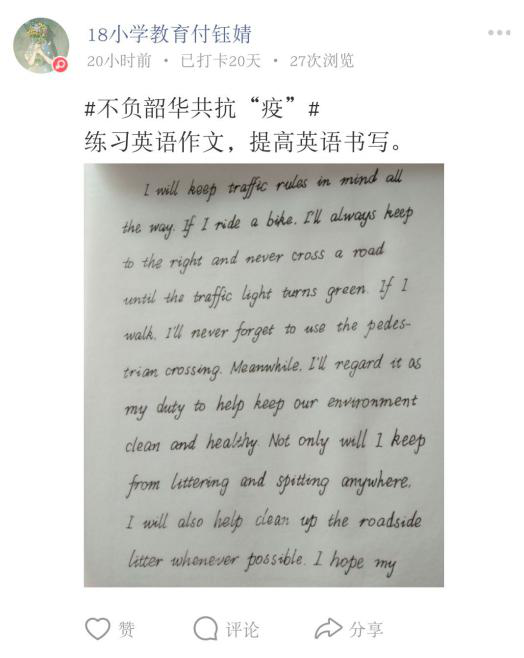 18小学教育付钰婧
20小时前 · 已打卡20天 · 27次浏览
#不负韶华共抗“疫”#
练习英语作文，提高英语书写。
I will keep traffic rules in mind all
the way. If I ride a bike. I'll always keep
to the right and never cross a road
until the traffic light turns green. If I
walk, I'll never forget to use the pedes-
trian crossing. Meanwhile, I'll regard it as
my duty to help keep our environment
clean and healthy. Not only will I keep
from littering and spitting anywhere,
I will also help clean up the roadside
litter whenever possible. I hope my
赞 评论 分享